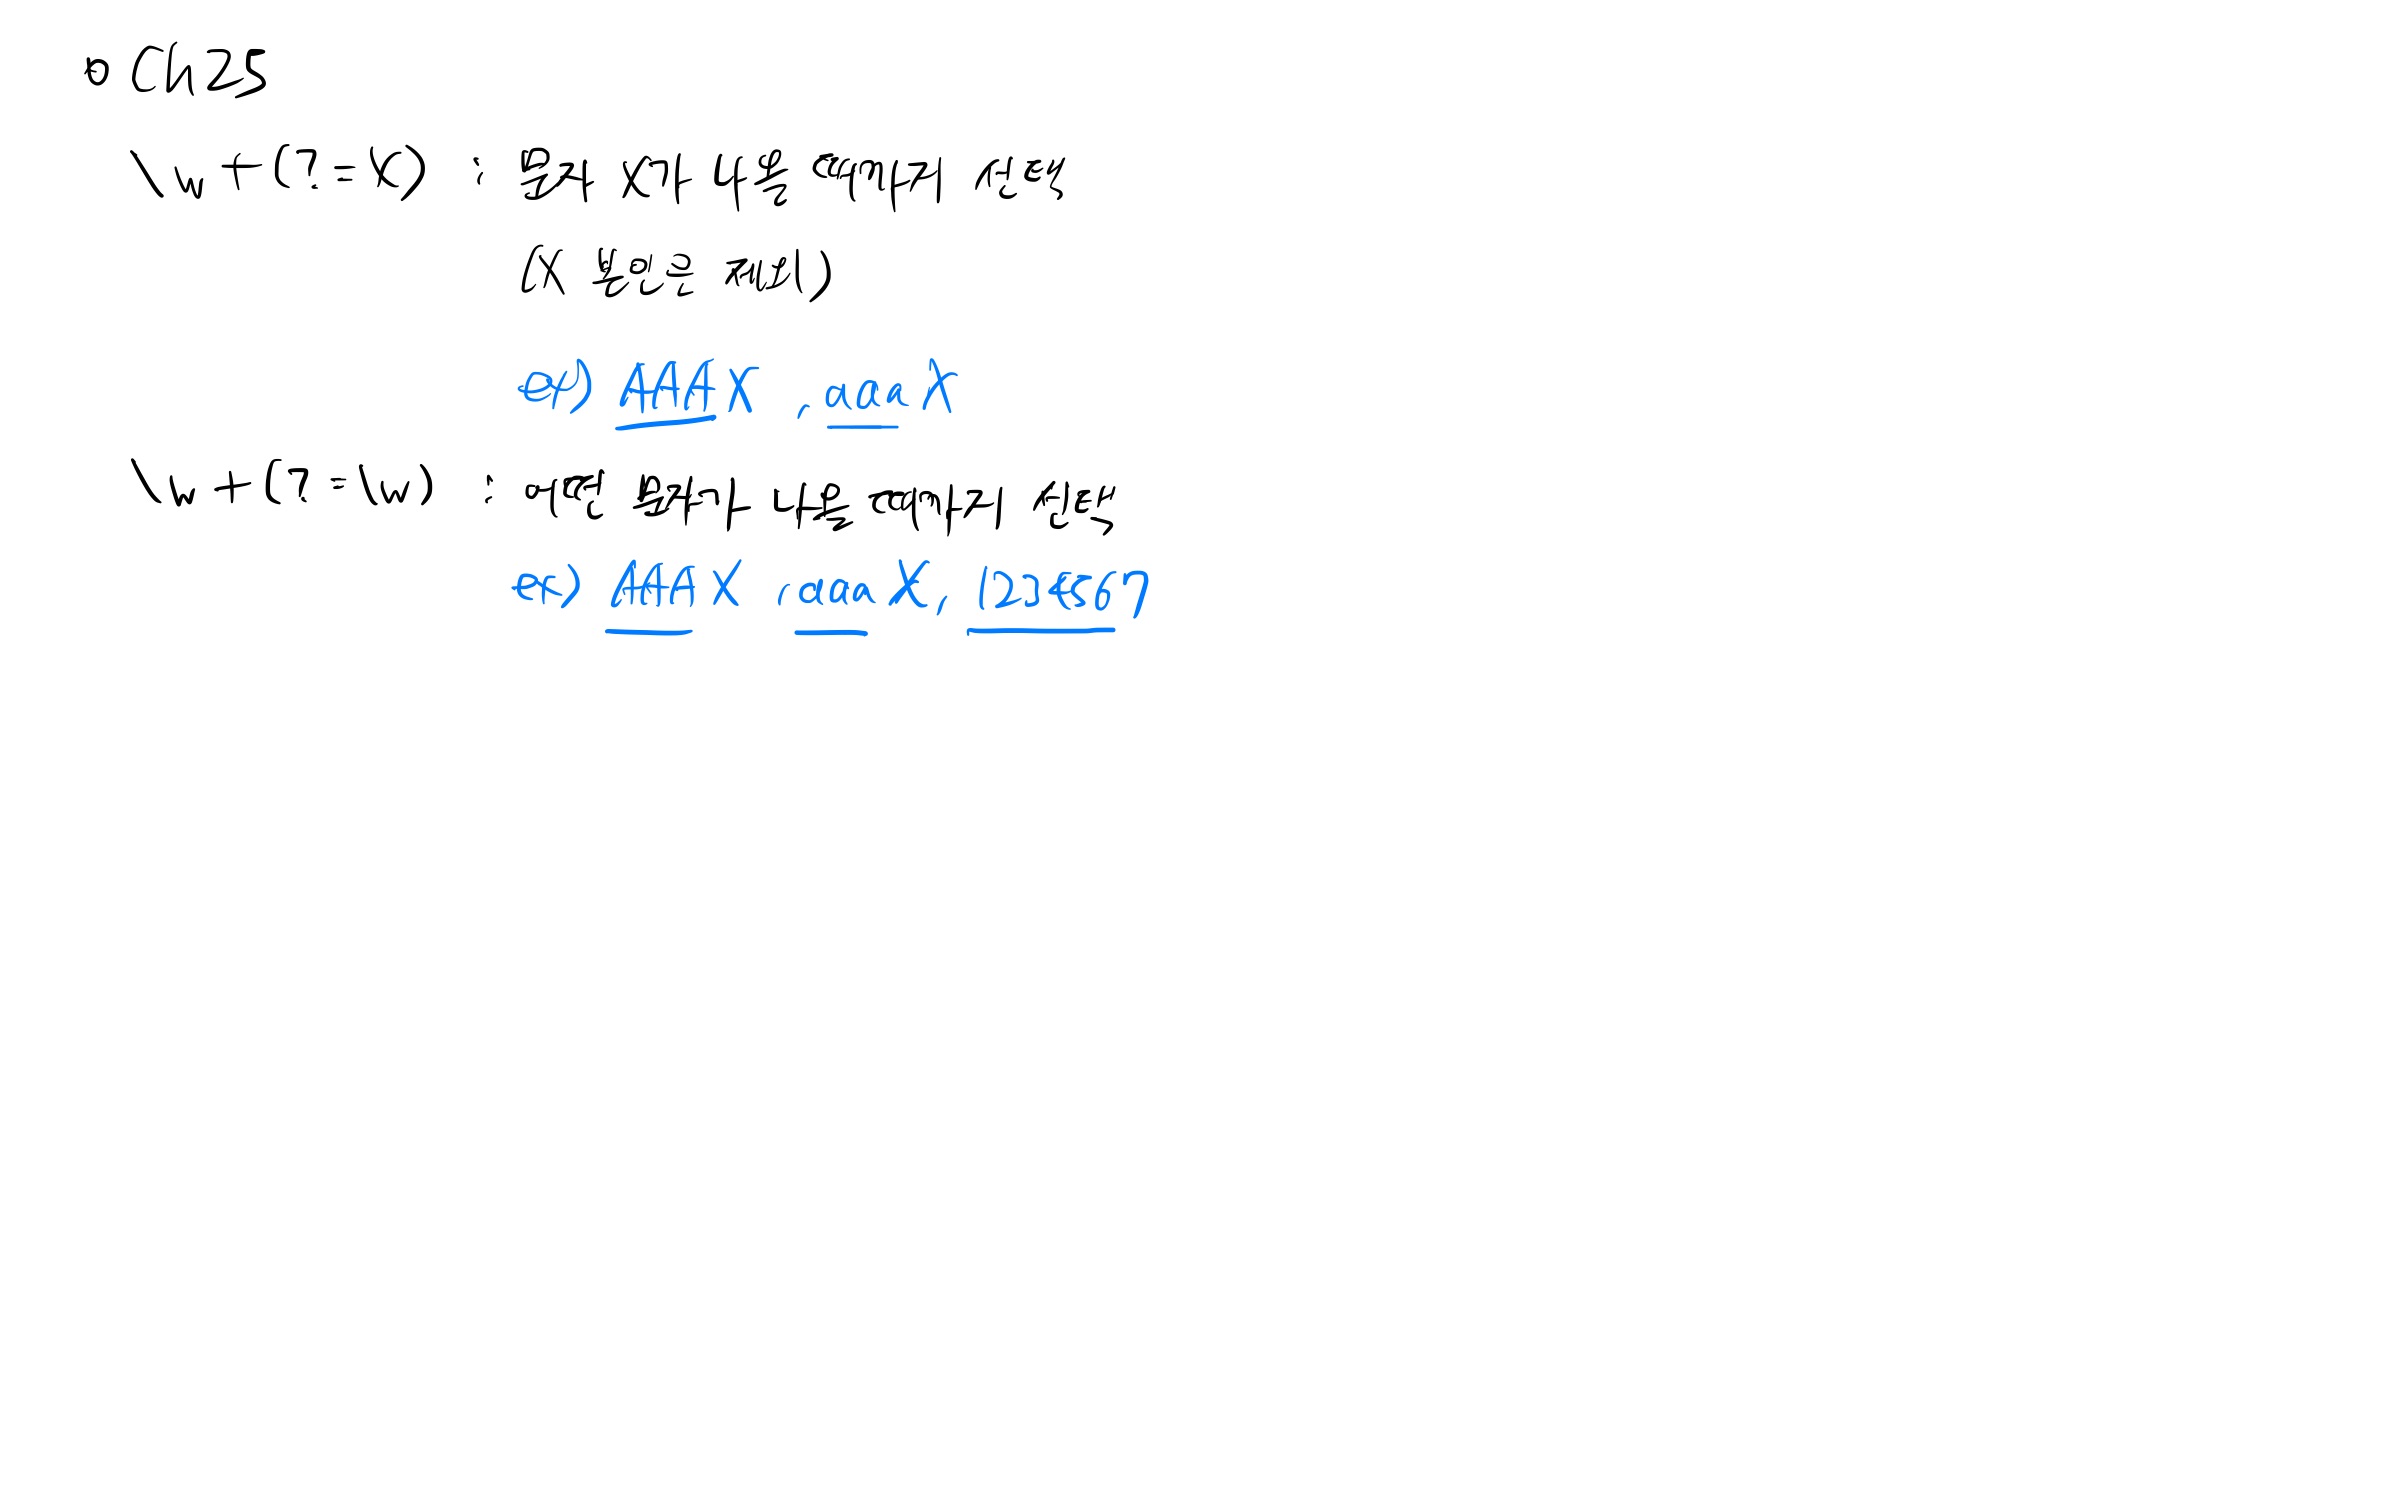 Ch25
\w+(?=X) : 문자 X가 나올 때까지 선택
(X 본인은 제외)
ex) AAAX , aaaX
\w+(?=\w) : 어떤 문자가 나올 때까지 선택
ex) AAAX , aaaX, 1234567